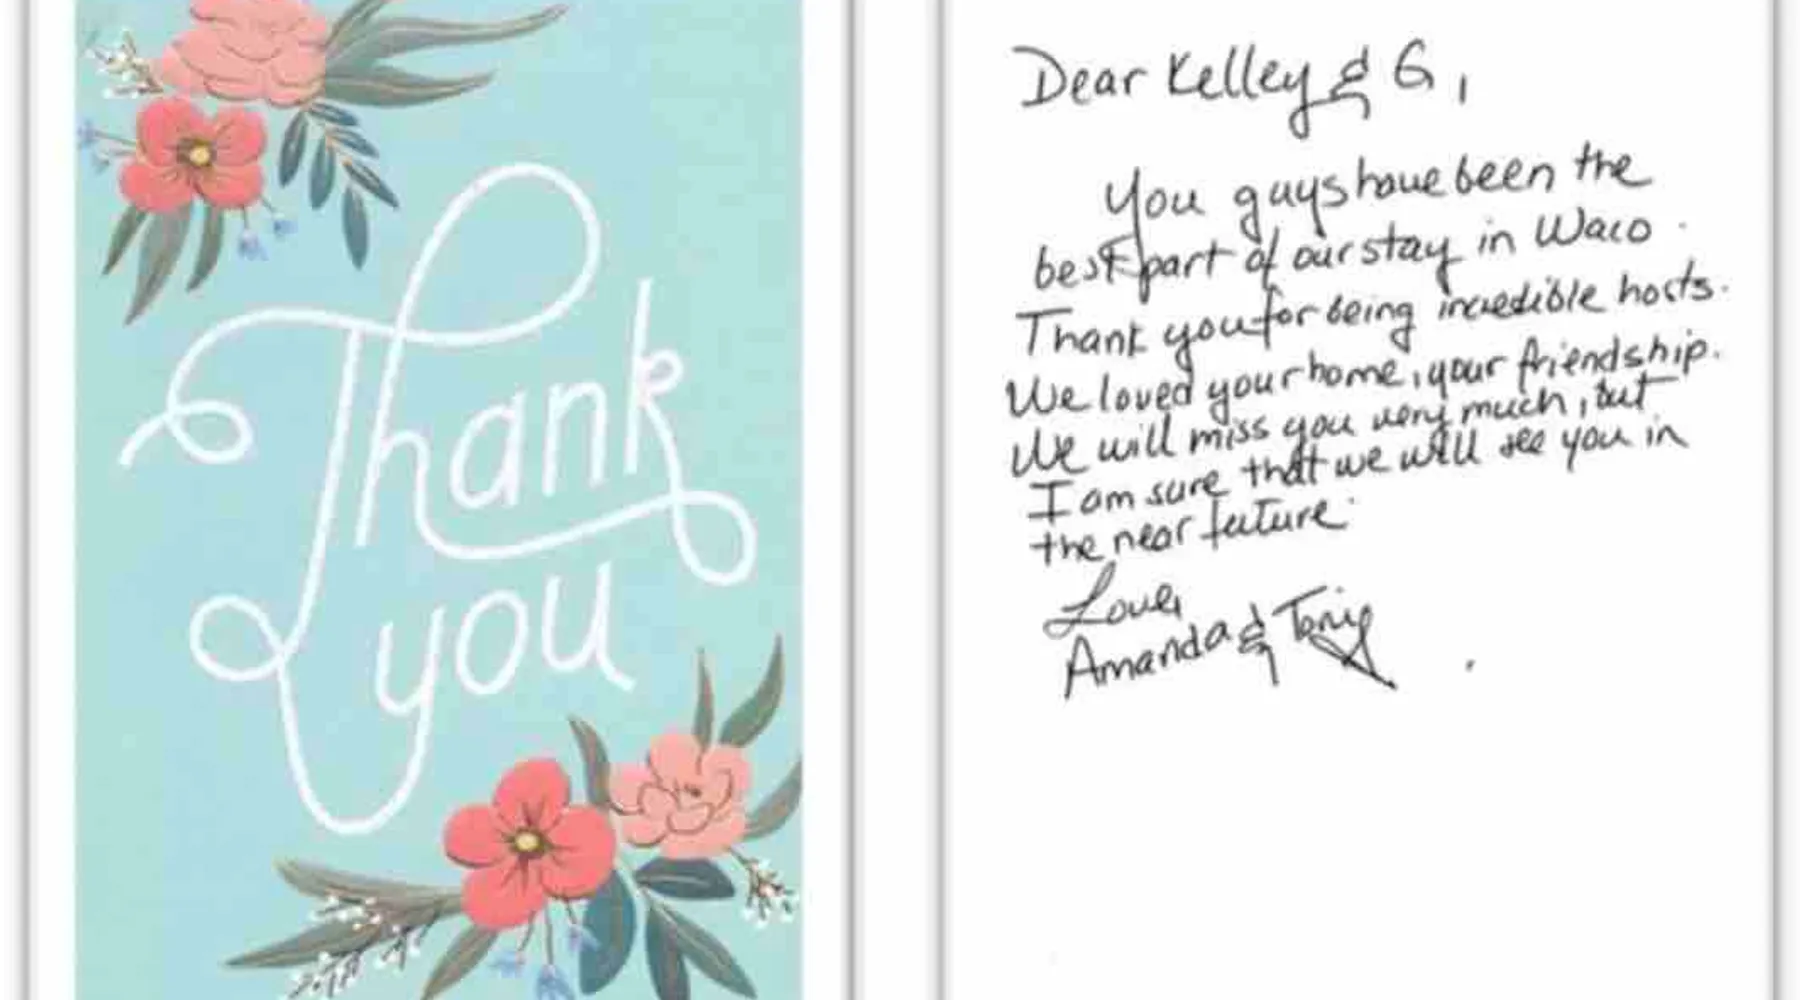 Thank
you
Dear Kelley & G,
You guys have been the
best part of our stay in Waco.
Thank you for being incredible hosts.
We loved your home, your friendship.
We will miss you very much, but
I am sure that we will see you in
the near future.
Love,
Amanda & Tony